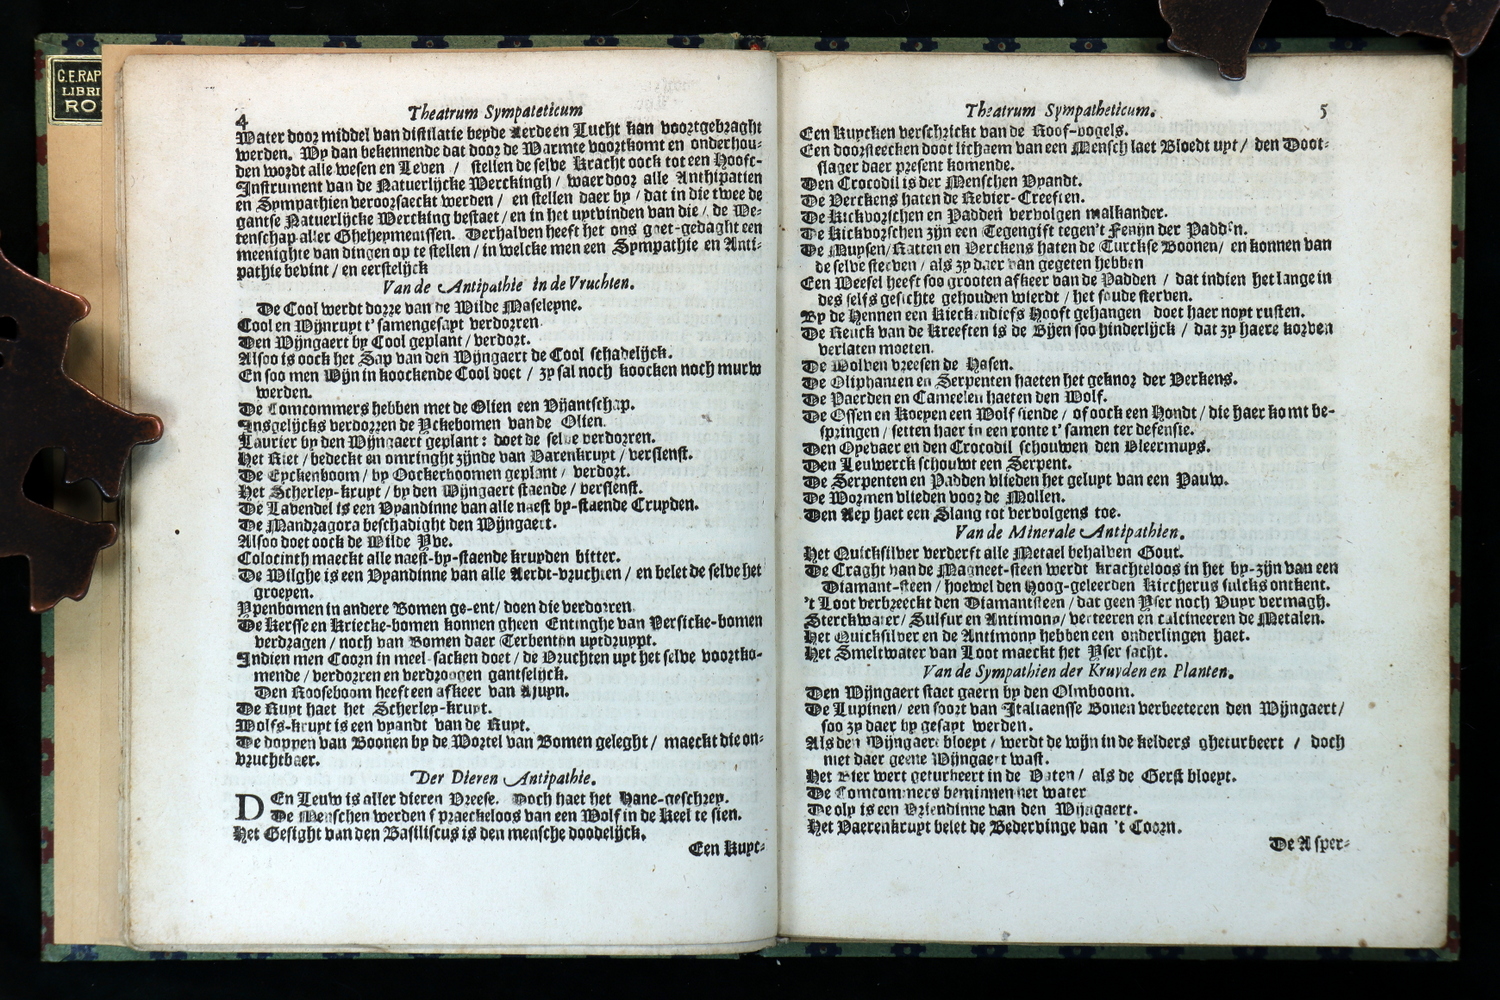 C.E.RAP
LIBRI
RO
4
Theatrum Sympateticum
Water door middel van distilatie beyde Aerde en Lucht kan voortgebraght
werden. Wy dan bekennende dat door de Warmte voortkomt en onderhou-
den wordt alle wesen en Leven / stellen de selve Kracht oock tot een Hooft-
Instrument van de Natuerlijcke Werckingh / waer door alle Anthipatien
en Sympathien veroorsaeckt werden / en stellen daer by / dat in die twee de
gantse Natuerlijcke Wercking bestaet / en in het uytvinden van die / de We-
tenschap aller Gheheymenissen. Derhalven heeft het ons goet-gedaght een
meenighte van dingen op te stellen / in welcke men een Sympathie en Anti-
pathie bevint / en eerstelijck
Van de Antipathie in de Vruchten.
De Cool werdt dorre van de Wilde Maseleyne.
Cool en Wijnruyt t'samengesayt verdorren
Den Wijngaert by Cool geplant / verdort.
Alsoo is oock het Sap van den Wijngaert de Cool schadelijck.
En soo men Wijn in koockende Cool doet / zy sal noch koocken noch murw
werden.
De Comcommers hebben met de Olien een Vijantschap.
Insgelijcks verdorren de Yckebomen van de Olien.
Laurier by den Wijngaert geplant: doet de selve verdorren.
Het Riet / bedeckt en omringht zijnde van Varenkruyt / verslenst.
De Eyckenboom / by Oockerboomen geplant / verdort.
Het Scherley-kruyt / by den Wijngaert staende / verslenst.
De Lavendel is een Vyandinne van alle naest by-staende Cruyden.
De Mandragora beschadight den Wijngaert.
Alsoo doet oock de Wilde Yve.
Colocinth maeckt alle naest-by-staende kruyden bitter.
De Wilghe is een Vyandinne van alle Aerdt-vruchten / en belet de selve het
groeyen.
Ypenbomen in andere Bomen ge-ent / doen die verdorren
De Kersse en Kriecke-bomen konnen gheen Entinghe van Persicke-bomen
verdragen / noch van Bomen daer Terbentyn uytdruypt.
Indien men Coorn in meel-sacken doet / de Vruchten uyt het selve voortko-
mende / verdorren en verdroogen gantselijck.
Den Rooseboom heeft een afkeer van Ajuyn.
De Ruyt haet het Scherley-kruyt.
Wolfs-kruyt is een vyandt van de Ruyt.
De doppen van Boonen by de Wortel van Bomen geleght / maeckt die on-
vruchtbaer.
Der Dieren Antipathie.
DEn Leuw is aller dieren Vreese. Doch haet het Hane-geschrey.
De Menschen werden spraeckeloos van een Wolf in de Keel te sien.
Het Gesight van den Basiliscus is den mensche doodelijck.
Een Kuyc-
Theatrum Sympatheticum.
5
Een Kuycken verschrickt van de Roof-vogels.
Een doorsteecken doot lichaem van een Mensch laet Bloedt uyt / den Doot-
slager daer present komende.
Den Crocodil is der Menschen Vyandt.
De Verckens haten de Revier-Creeften.
De Kickvorschen en Padden vervolgen malkander.
De Kickvorschen zijn een Tegengift tegen't Fenijn der Padden.
De Muysen / Ratten en Verckens haten de Turckse Boonen / en konnen van
de selve sterven / als zy daer van gegeten hebben
Een Weesel heeft soo grooten afkeer van de Padden / dat indien het lange in
des selfs gesichte gehouden wierdt / het soude sterven.
By de Hennen een Kieckendiefs Hooft gehangen doet haer noyt rusten.
De Reuck van de Kreeften is de Byen soo hinderlijck / dat zy haere korven
verlaten moeten.
De Wolven vreesen de Hasen.
De Oliphanten en Serpenten haeten het geknor der Verkens.
De Paerden en Cameelen haeten den Wolf.
De Ossen en Koeyen een Wolf siende / of oock een Hondt / die haer komt be-
springen / setten haer in een ronte t'samen ter defensie.
Den Oyevaer en den Crocodil schouwen den Vleermuys.
Den Leuwerck schouwt een Serpent.
De Serpenten en Padden vlieden het geluyt van een Pauw.
De Wormen vlieden voor de Mollen.
Den Aep haet een Slang tot vervolgens toe.
Van de Minerale Antipathien.
Het Quicksilver verderft alle Metael behalven Gout.
De Craght van de Magneet-steen werdt krachteloos in het by-zijn van een
Diamant-steen / hoewel den Hoog-geleerden Kircherus sulcks ontkent.
't Loot verbreeckt den Diamantsteen / dat geen Yser noch Vuyr vermagh.
Sterckwater / Sulfur en Antimony / verteeren en calcineeren de Metalen.
Het Quicksilver en de Antimony hebben een onderlingen haet.
Het Smeltwater van Loot maeckt het Yser sacht.
Van de Sympathien der Kruyden en Planten.
Den Wijngaert staet gaern by den Olmboom.
De Lupinen / een soort van Italiaensse Bonen verbeeteren den Wijngaert /
soo zy daer by gesayt werden.
Als den Wijngaert bloeyt / werdt de wijn in de kelders gheturbeert / doch
niet daer geene Wijngaert wast.
Het Bier wert geturbeert in de Vaten / als de Gerst bloeyt.
De Comcommers beminnen het water
De oly is een Vriendinne van den Wijngaert.
Het Vaerenkruyt belet de Bedervinge van 't Coorn.
De Asper-